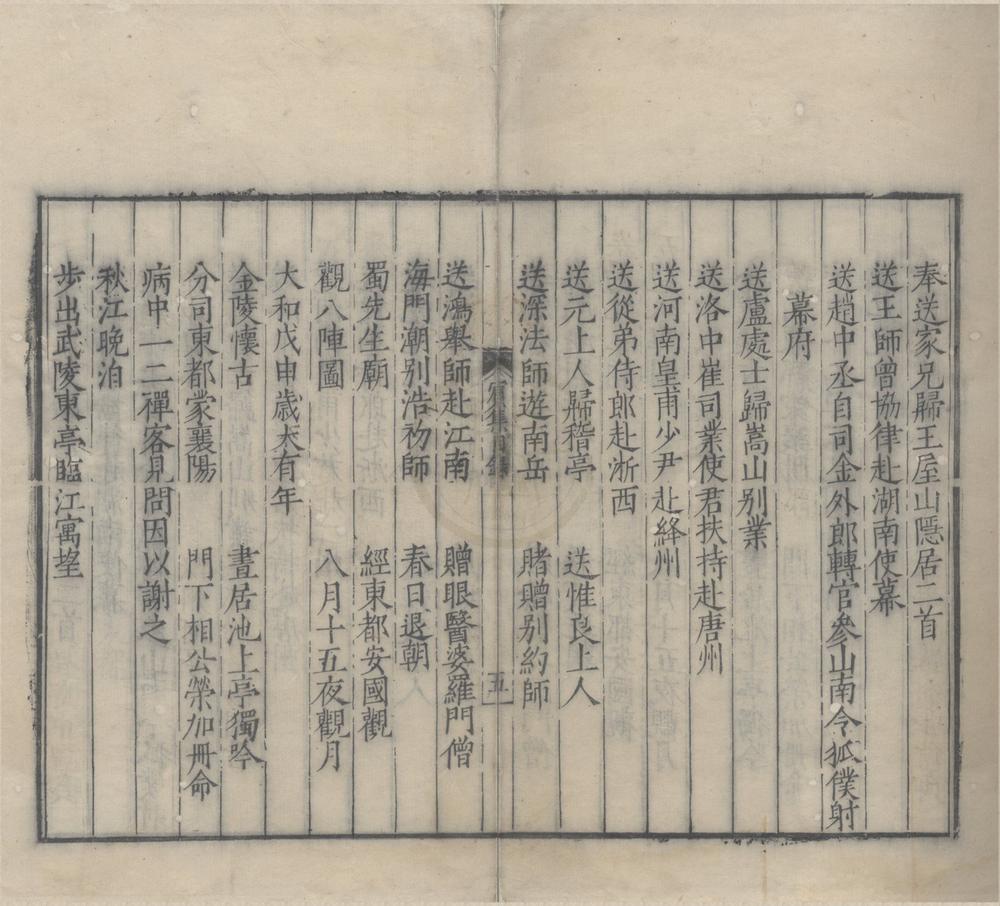 奉送家兄歸王屋山隱居二首
送王師曾協律赴湖南使幕
送趙中丞自司金外郎轉官參山南令狐僕射
幕府
送盧處士歸嵩山别業
送洛中崔司業使君扶持赴唐州
送河南皇甫少尹赴絳州
送從弟侍郎赴浙西
送元上人歸稽亭　送惟良上人
送深法師遊南岳　賭贈别約師
五
送鴻舉師赴江南　贈眼醫婆羅門僧
海門潮别浩初師　春日退朝
蜀先生廟　經東都安國觀
觀八陣圖　八月十五夜觀月
大和戊申歲大有年
金陵懷古　晝居池上亭獨吟
分司東都蒙襄陽　門下相公榮加冊命
病中一二禪客見問因以謝之
秋江晚泊
步出武陵東亭臨江寓望